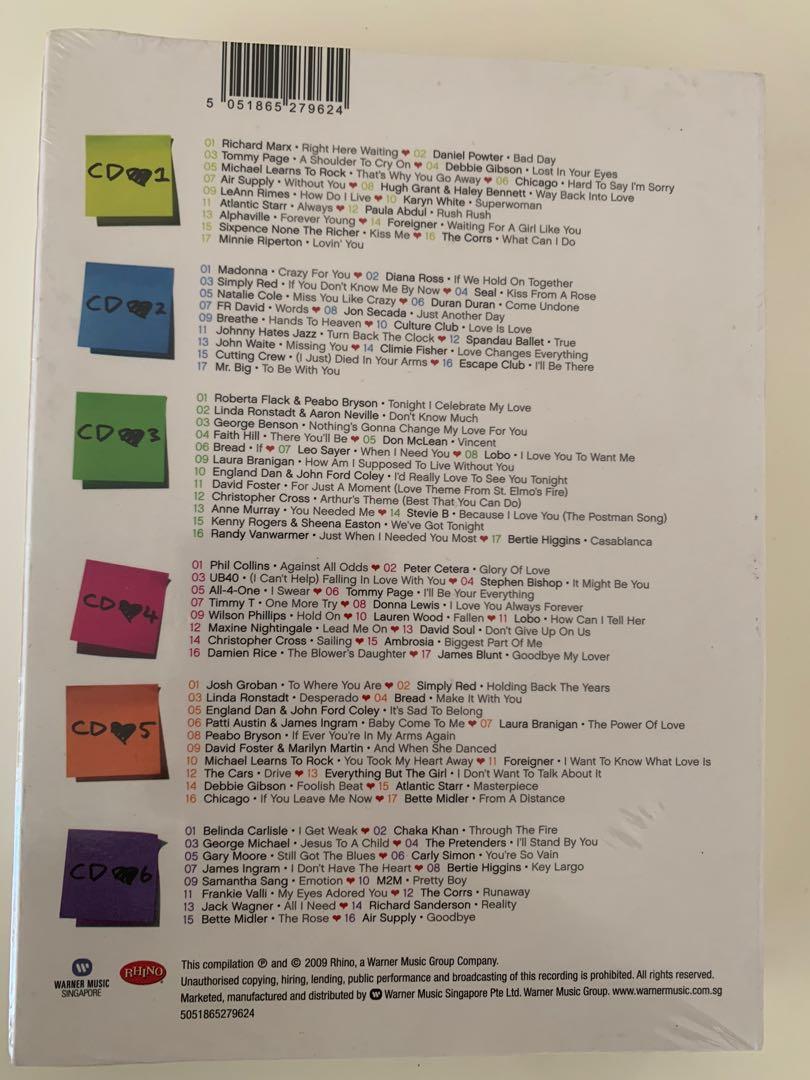 5 051865 279624
CD ♥ 1
01 Richard Marx • Right Here Waiting ♥ 02 Daniel Powter • Bad Day
03 Tommy Page • A Shoulder To Cry On ♥ 04 Debbie Gibson • Lost In Your Eyes
05 Michael Learns To Rock • That's Why You Go Away ♥ 06 Chicago • Hard To Say I'm Sorry
07 Air Supply • Without You ♥ 08 Hugh Grant & Haley Bennett • Way Back Into Love
09 LeAnn Rimes • How Do I Live ♥ 10 Karyn White • Superwoman
11 Atlantic Starr • Always ♥ 12 Paula Abdul • Rush Rush
13 Alphaville • Forever Young ♥ 14 Foreigner • Waiting For A Girl Like You
15 Sixpence None The Richer • Kiss Me ♥ 16 The Corrs • What Can I Do
17 Minnie Riperton • Lovin' You
CD ♥ 2
01 Madonna • Crazy For You ♥ 02 Diana Ross • If We Hold On Together
03 Simply Red • If You Don't Know Me By Now ♥ 04 Seal • Kiss From A Rose
05 Natalie Cole • Miss You Like Crazy ♥ 06 Duran Duran • Come Undone
07 FR David • Words ♥ 08 Jon Secada • Just Another Day
09 Breathe • Hands To Heaven ♥ 10 Culture Club • Love Is Love
11 Johnny Hates Jazz • Turn Back The Clock ♥ 12 Spandau Ballet • True
13 John Waite • Missing You ♥ 14 Climie Fisher • Love Changes Everything
15 Cutting Crew • (I Just) Died In Your Arms ♥ 16 Escape Club • I'll Be There
17 Mr. Big • To Be With You
CD ♥ 3
01 Roberta Flack & Peabo Bryson • Tonight I Celebrate My Love
02 Linda Ronstadt & Aaron Neville • Don't Know Much
03 George Benson • Nothing's Gonna Change My Love For You
04 Faith Hill • There You'll Be ♥ 05 Don McLean • Vincent
06 Bread • If ♥ 07 Leo Sayer • When I Need You ♥ 08 Lobo • I Love You To Want Me
09 Laura Branigan • How Am I Supposed To Live Without You
10 England Dan & John Ford Coley • I'd Really Love To See You Tonight
11 David Foster • For Just A Moment (Love Theme From St. Elmo's Fire)
12 Christopher Cross • Arthur's Theme (Best That You Can Do)
13 Anne Murray • You Needed Me ♥ 14 Stevie B • Because I Love You (The Postman Song)
15 Kenny Rogers & Sheena Easton • We've Got Tonight
16 Randy Vanwarmer • Just When I Needed You Most ♥ 17 Bertie Higgins • Casablanca
CD ♥ 4
01 Phil Collins • Against All Odds ♥ 02 Peter Cetera • Glory Of Love
03 UB40 • (I Can't Help) Falling In Love With You ♥ 04 Stephen Bishop • It Might Be You
05 All-4-One • I Swear ♥ 06 Tommy Page • I'll Be Your Everything
07 Timmy T • One More Try ♥ 08 Donna Lewis • I Love You Always Forever
09 Wilson Phillips • Hold On ♥ 10 Lauren Wood • Fallen ♥ 11 Lobo • How Can I Tell Her
12 Maxine Nightingale • Lead Me On ♥ 13 David Soul • Don't Give Up On Us
14 Christopher Cross • Sailing ♥ 15 Ambrosia • Biggest Part Of Me
16 Damien Rice • The Blower's Daughter ♥ 17 James Blunt • Goodbye My Lover
CD ♥ 5
01 Josh Groban • To Where You Are ♥ 02 Simply Red • Holding Back The Years
03 Linda Ronstadt • Desperado ♥ 04 Bread • Make It With You
05 England Dan & John Ford Coley • It's Sad To Belong
06 Patti Austin & James Ingram • Baby Come To Me ♥ 07 Laura Branigan • The Power Of Love
08 Peabo Bryson • If Ever You're In My Arms Again
09 David Foster & Marilyn Martin • And When She Danced
10 Michael Learns To Rock • You Took My Heart Away ♥ 11 Foreigner • I Want To Know What Love Is
12 The Cars • Drive ♥ 13 Everything But The Girl • I Don't Want To Talk About It
14 Debbie Gibson • Foolish Beat ♥ 15 Atlantic Starr • Masterpiece
16 Chicago • If You Leave Me Now ♥ 17 Bette Midler • From A Distance
CD ♥ 6
01 Belinda Carlisle • I Get Weak ♥ 02 Chaka Khan • Through The Fire
03 George Michael • Jesus To A Child ♥ 04 The Pretenders • I'll Stand By You
05 Gary Moore • Still Got The Blues ♥ 06 Carly Simon • You're So Vain
07 James Ingram • I Don't Have The Heart ♥ 08 Bertie Higgins • Key Largo
09 Samantha Sang • Emotion ♥ 10 M2M • Pretty Boy
11 Frankie Valli • My Eyes Adored You ♥ 12 The Corrs • Runaway
13 Jack Wagner • All I Need ♥ 14 Richard Sanderson • Reality
15 Bette Midler • The Rose ♥ 16 Air Supply • Goodbye
WARNER MUSIC
SINGAPORE
RHINO
This compilation ℗ and © 2009 Rhino, a Warner Music Group Company.
Unauthorised copying, hiring, lending, public performance and broadcasting of this recording is prohibited. All rights reserved.
Marketed, manufactured and distributed by Warner Music Singapore Pte Ltd. Warner Music Group. www.warnermusic.com.sg
5051865279624